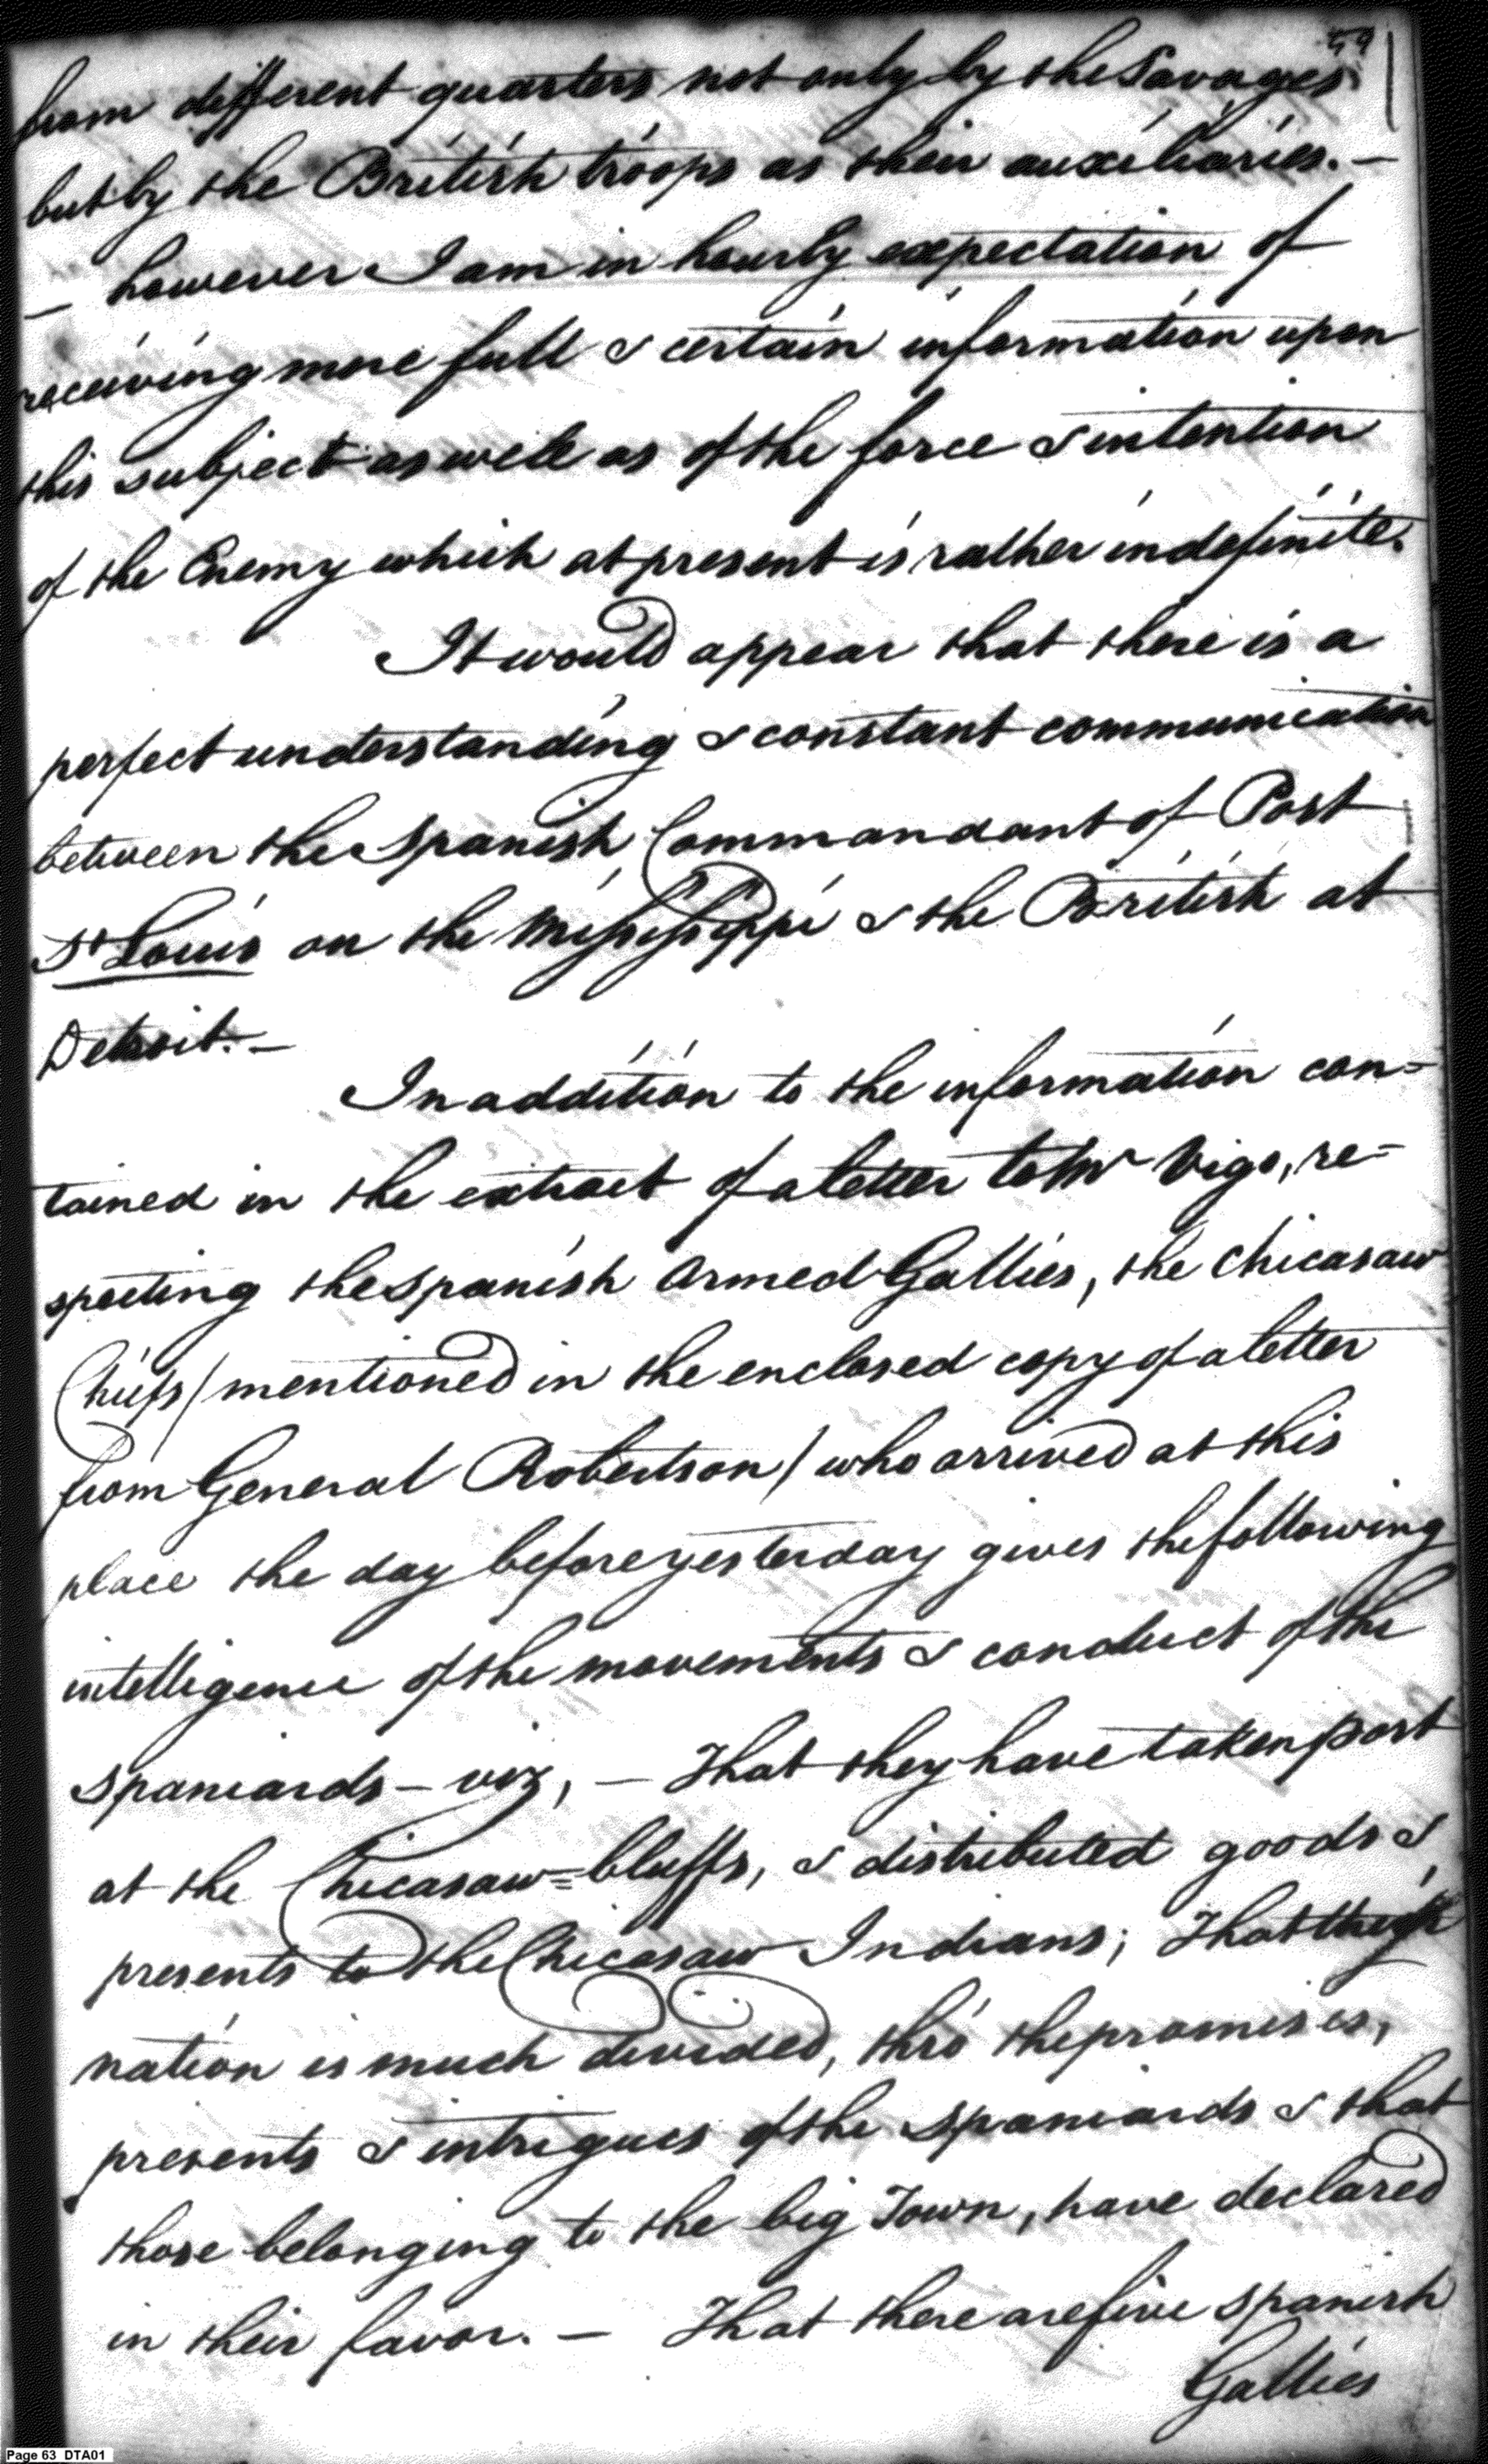 59
from different quarters not only by the Savages
but by the British troops as their auxiliaries. —
— however I am in hourly expectation of
receiving more full & certain information upon
this subject as well as of the force & intention
of the Enemy which at present is rather indefinite.
It would appear that there is a
perfect understanding & constant communication
between the Spanish Commandant of Post
St Louis on the Missisippi & the British at
Detroit. —
In addition to the information con=
tained in the extract of a letter to Mr Vigo, re=
specting the Spanish Armed Gallies, the Chicasaw
Chiefs (mentioned in the enclosed copy of a letter
from General Robertson) who arrived at this
place the day before yesterday gives the following
intelligence of the movements & conduct of the
Spaniards — viz, — That they have taken post
at the Chicasaw=bluffs, & distributed goods &
presents to the Chicasaw Indians; That
nation is much divided, thro' the promises,
presents & intrigues of the Spaniards & that
those belonging to the big Town, have declared
in their favor. — That there are five Spanish
Gallies
Page 63 DTA01